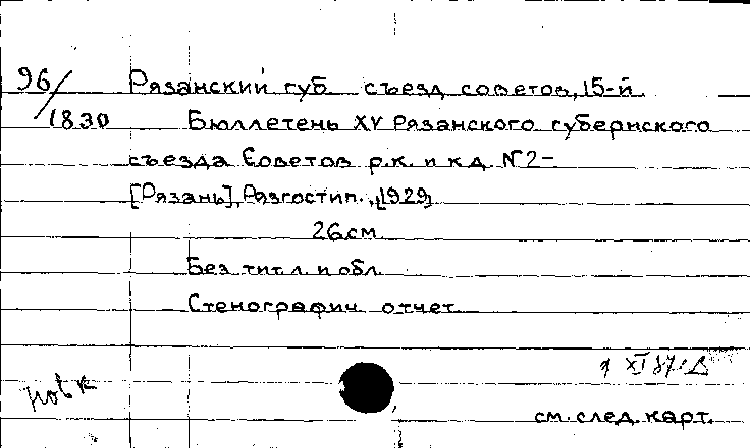 96/1830 Рязанский губ. съезд советов, 15-й
Бюллетень XV Рязанского губернского
съезда Советов р.к. и к.д. №2-
[Рязань], Рязгостип., [1929]
26 см.
Без тит. л. и обл.
Стенографич. отчет
XI 87
новк
см. след. карт.